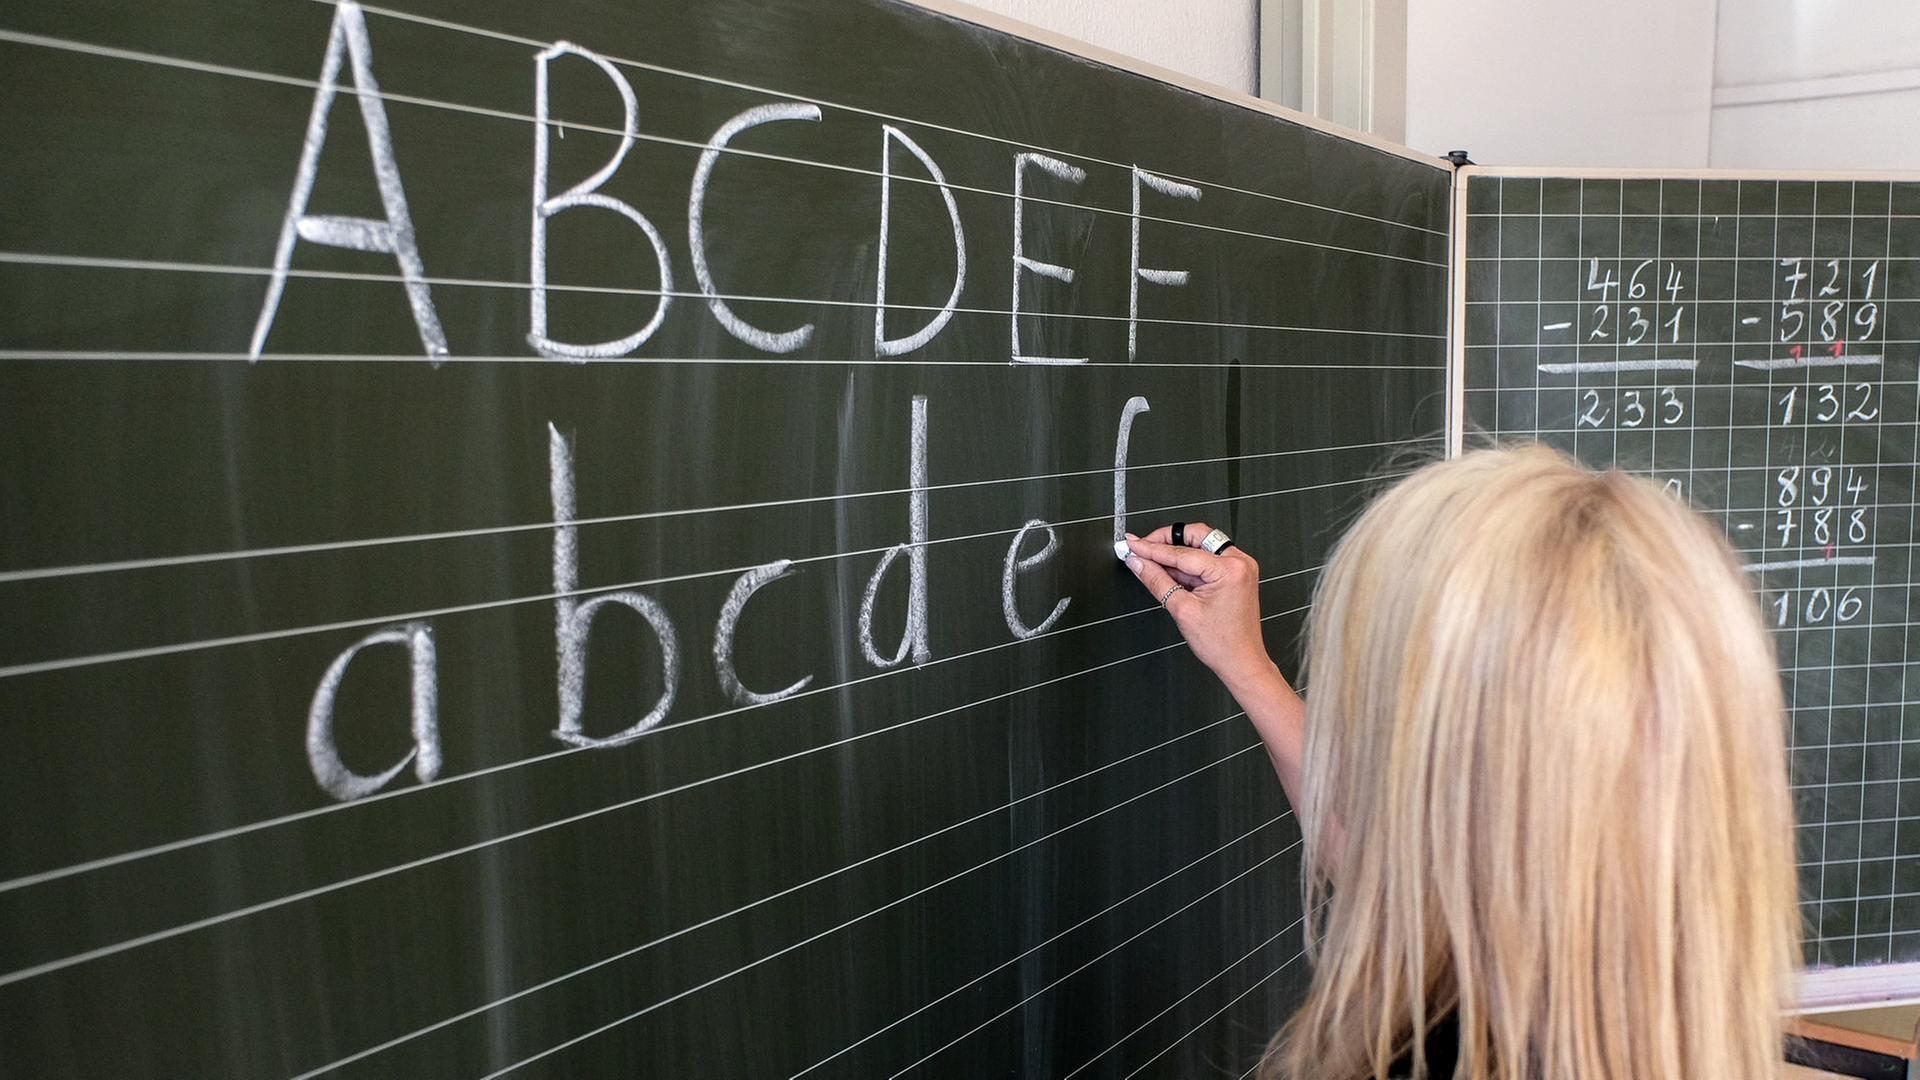 A B C D E F
a b c d e f
464
- 231
233
721
- 589
1 1
132
894
- 788
1
106